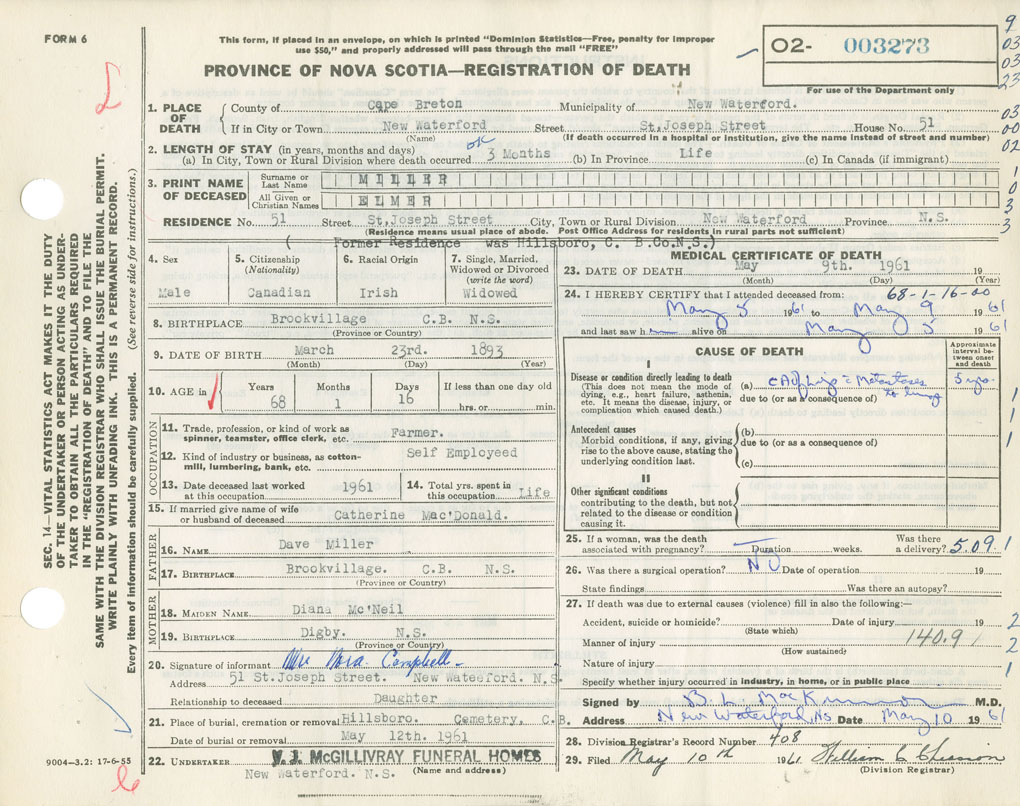 FORM 6
This form, if placed in an envelope, on which is printed "Dominion Statistics—Free, penalty for improper
use $50," and properly addressed will pass through the mail "FREE"
PROVINCE OF NOVA SCOTIA—REGISTRATION OF DEATH
02- 003273
For use of the Department only
9
03
03
23
03
00
02
1
0
3
3
SEC. 14—VITAL STATISTICS ACT MAKES IT THE DUTY
OF THE UNDERTAKER OR PERSON ACTING AS UNDER-
TAKER TO OBTAIN ALL THE PARTICULARS REQUIRED
IN THE "REGISTRATION OF DEATH" AND TO FILE THE
SAME WITH THE DIVISION REGISTRAR WHO SHALL ISSUE THE BURIAL PERMIT.
WRITE PLAINLY WITH UNFADING INK. THIS IS A PERMANENT RECORD.
Every item of information should be carefully supplied. (See reverse side for instructions.)
1. PLACE OF DEATH
County of Cape Breton Municipality of New Waterford.
If in City or Town New Waterford Street St. Joseph Street House No. 51
(Name) (If death occurred in a hospital or institution, give the name instead of street and number)
2. LENGTH OF STAY (in years, months and days) ok
(a) In City, Town or Rural Division where death occurred 3 Months (b) In Province Life (c) In Canada (if immigrant)
3. PRINT NAME OF DECEASED
Surname or Last Name MILLER
All Given or Christian Names ELMER
RESIDENCE No. 51 Street St.Joseph Street City, Town or Rural Division New Waterford Province N.S.
(Residence means usual place of abode. Post Office Address for residents in rural parts not sufficient)
( Former Residence was Hillsboro, C. B.Co.N.S.)
4. Sex
Male
5. Citizenship (Nationality)
Canadian
6. Racial Origin
Irish
7. Single, Married, Widowed or Divorced (write the word)
Widowed
8. BIRTHPLACE Brookvillage C.B. N.S.
(Province or Country)
9. DATE OF BIRTH March 23rd. 1893
(Month) (Day) (Year)
10. AGE in
Years 68
Months 1
Days 16
If less than one day old
hrs. or min.
OCCUPATION
11. Trade, profession, or kind of work as spinner, teamster, office clerk, etc. Farmer.
12. Kind of industry or business, as cotton-mill, lumbering, bank, etc. Self Employeed
13. Date deceased last worked at this occupation 1961
14. Total yrs. spent in this occupation Life
15. If married give name of wife or husband of deceased Catherine Mac'Donald.
FATHER
16. NAME Dave Miller
17. BIRTHPLACE Brookvillage. C.B. N.S.
(Province or Country)
MOTHER
18. MAIDEN NAME Diana Mc'Neil
19. BIRTHPLACE Digby. N.S.
(Province or Country)
20. Signature of informant Mrs Nora Campbell
Address 51 St.Joseph Street. New Wateeford. N.S.
Relationship to deceased Daughter
21. Place of burial, cremation or removal Hillsboro. Cemetery, C.B.
Date of burial or removal May 12th. 1961
22. UNDERTAKER V. J. McGILLIVRAY FUNERAL HOMES
New Waterford. N.S. (Name and address)
9004—3.2: 17-6-55
MEDICAL CERTIFICATE OF DEATH
23. DATE OF DEATH May 9th. 1961 19
(Month) (Day) (Year)
68-1-16-00
24. I HEREBY CERTIFY that I attended deceased from:
May 3 1961 to May 9 1961
and last saw him alive on May 3 1961
CAUSE OF DEATH
Approximate interval between onset and death
I
Disease or condition directly leading to death
(This does not mean the mode of dying, e.g., heart failure, asthenia, etc. It means the disease, injury, or complication which caused death.)
(a) CA of Lip c Metastases to lung 5 yrs.
due to (or as a consequence of)
Antecedent causes
Morbid conditions, if any, giving rise to the above cause, stating the underlying condition last.
(b)
due to (or as a consequence of)
(c)
II
Other significant conditions
contributing to the death, but not related to the disease or condition causing it.
1
1
1
25. If a woman, was the death associated with pregnancy? Duration weeks. Was there a delivery? 5.09.1
26. Was there a surgical operation? NO Date of operation 19
State findings Was there an autopsy?
27. If death was due to external causes (violence) fill in also the following:—
Accident, suicide or homicide? Date of injury 19 2
(State which)
Manner of injury 140.9 / 2
(How sustained)
Nature of injury 1
Specify whether injury occurred in industry, in home, or in public place
Signed by B. L. MacKinnon M.D.
Address New Waterford, NS Date May 10 1961
28. Division Registrar's Record Number 408
29. Filed May 10th 1961 William C Chiasson
(Division Registrar)